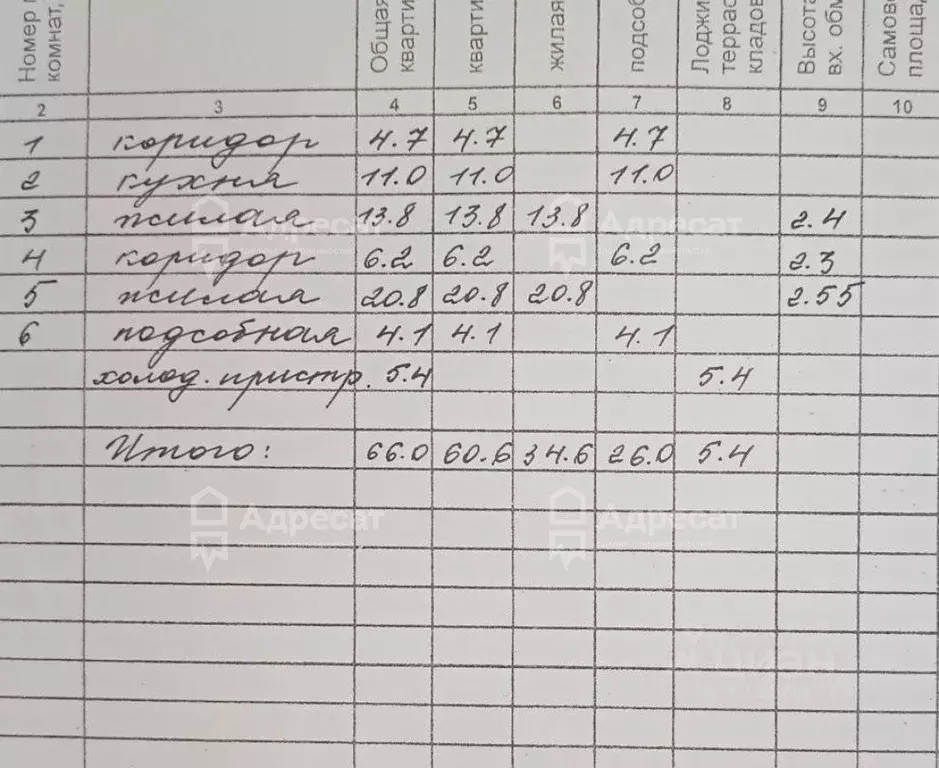 Номер
комнат,
Общая
кварти
кварти
жилая
подсоб
Лоджи
террас
кладов
Высота
вх. обм
Самово
площад
2 3 4 5 6 7 8 9 10
1 коридор 4.7 4.7 4.7
2 кухня 11.0 11.0 11.0
3 жилая 13.8 13.8 13.8 2.4
4 коридор 6.2 6.2 6.2 2.3
5 жилая 20.8 20.8 20.8 2.55
6 подсобная 4.1 4.1 4.1
холод. пристр. 5.4 5.4
Итого: 66.0 60.6 34.6 26.0 5.4
Адресат Адресат
Адресат Адресат
циан